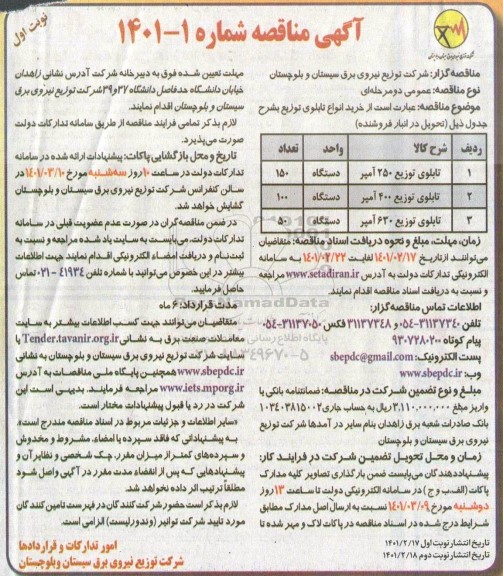 نوبت اول
آگهی مناقصه شماره ۱-۱۴۰۱
مناقصه گزار: شرکت توزیع نیروی برق سیستان و بلوچستان
نوع مناقصه: عمومی دو مرحله‌ای
موضوع مناقصه: عبارت است از خرید انواع تابلوی توزیع بشرح
جدول ذیل (تحویل در انبار فروشنده)
ردیف شرح کالا واحد تعداد
۱ تابلوی توزیع ۲۵۰ آمپر دستگاه ۱۵۰
۲ تابلوی توزیع ۴۰۰ آمپر دستگاه ۱۰۰
۳ تابلوی توزیع ۶۳۰ آمپر دستگاه ۵۰
زمان، مهلت، مبلغ و نحوه دریافت اسناد مناقصه: متقاضیان
می‌توانند از تاریخ ۱۴۰۱/۰۲/۱۷ لغایت ۱۴۰۱/۰۲/۲۲ به سامانه
الکترونیکی تدارکات دولت به آدرس www.setadiran.ir مراجعه
و نسبت به دریافت اسناد مناقصه اقدام نمایند.
اطلاعات تماس مناقصه گزار:
تلفن ۳۱۱۳۷۳۴۰-۰۵۴ و ۳۱۱۳۷۳۴۸ فکس ۳۱۱۳۷۰۵۰-۰۵۴
پیام کوتاه ۹۳۰۷۲۸۲۰۰
پست الکترونیک: sbepdc@gmail.com
وب: www.sbepdc.ir
مبلغ و نوع تضمین شرکت در مناقصه: ضمانتنامه بانکی یا
واریز مبلغ ۳،۱۱۰،۰۰۰،۰۰۰ ریال به حساب جاری ۰۱۰۳۴۰۳۸۱۵۰۰۲
بانک صادرات شعبه برق زاهدان بنام سایر درآمدها شرکت توزیع
نیروی برق سیستان و بلوچستان
زمان و محل تحویل تضمین شرکت در فرایند کار:
پیشنهاددهندگان می‌بایست ضمن بارگذاری تصاویر کلیه مدارک
پاکات (الف، ب و ج) در سامانه الکترونیکی دولت تا ساعت ۱۳ روز
دوشنبه مورخ ۱۴۰۱/۰۳/۰۹ نسبت به ارسال اصل مدارک مطابق
شرایط درج شده در اسناد مناقصه در پاکات لاک و مهر شده تا
تاریخ انتشار نوبت اول ۱۴۰۱/۲/۱۷
تاریخ انتشار نوبت دوم ۱۴۰۱/۲/۱۸
مهلت تعیین شده فوق به دبیرخانه شرکت آدرس نشانی زاهدان
خیابان دانشگاه حدفاصل دانشگاه ۳۷ و ۳۹ شرکت توزیع نیروی برق
سیستان و بلوچستان اقدام نمایند.
لازم بذکر تمامی فرایند مناقصه از طریق سامانه تدارکات دولت
صورت می‌پذیرد.
تاریخ و محل بازگشایی پاکات: پیشنهادات ارائه شده در سامانه
تدارکات دولت در ساعت ۱۰ روز سه‌شنبه مورخ ۱۴۰۱/۰۳/۱۰ در
سالن کنفرانس شرکت توزیع نیروی برق سیستان و بلوچستان
گشایش خواهد شد.
در ضمن مناقصه گران در صورت عدم عضویت قبلی در سامانه
تدارکات دولت، می‌بایست به سایت یاد شده مراجعه و نسبت به
ثبت‌نام و دریافت امضاء الکترونیکی اقدام نمایند. جهت اطلاعات
بیشتر در این خصوص می‌توانید با شماره تلفن ۴۱۹۳۴-۰۲۱ تماس
حاصل فرمایید.
مدت قرارداد: ۶ ماه
متقاضیان می‌توانند جهت کسب اطلاعات بیشتر به سایت
معاملات صنعت برق به نشانی Tender.tavanir.org.ir یا
سایت شرکت توزیع نیروی برق سیستان و بلوچستان به نشانی
www.sbepdc.ir همچنین پایگاه ملی مناقصات به آدرس
www.iets.mporg.ir مراجعه فرمایند. بدیهی است این
شرکت در رد یا قبول پیشنهادات مختار است.
«سایر اطلاعات و جزئیات مربوط در اسناد مناقصه مندرج است».
به پیشنهاداتی که فاقد سپرده یا امضاء، مشروط و مخدوش
و سپرده‌های کمتر از میزان مقرر، چک شخصی و نظایر آن و
پیشنهادهایی که پس از انقضاء مدت مقرر در آگهی واصل شود
مطلقاً ترتیب اثر داده نخواهد شد.
لازم بذکر است حضور شرکت کنندگان در فهرست تامین کنندگان
مورد تایید شرکت توانیر (وندورلیست) الزامی است.
امور تدارکات و قراردادها
شرکت توزیع نیروی برق سیستان و بلوچستان